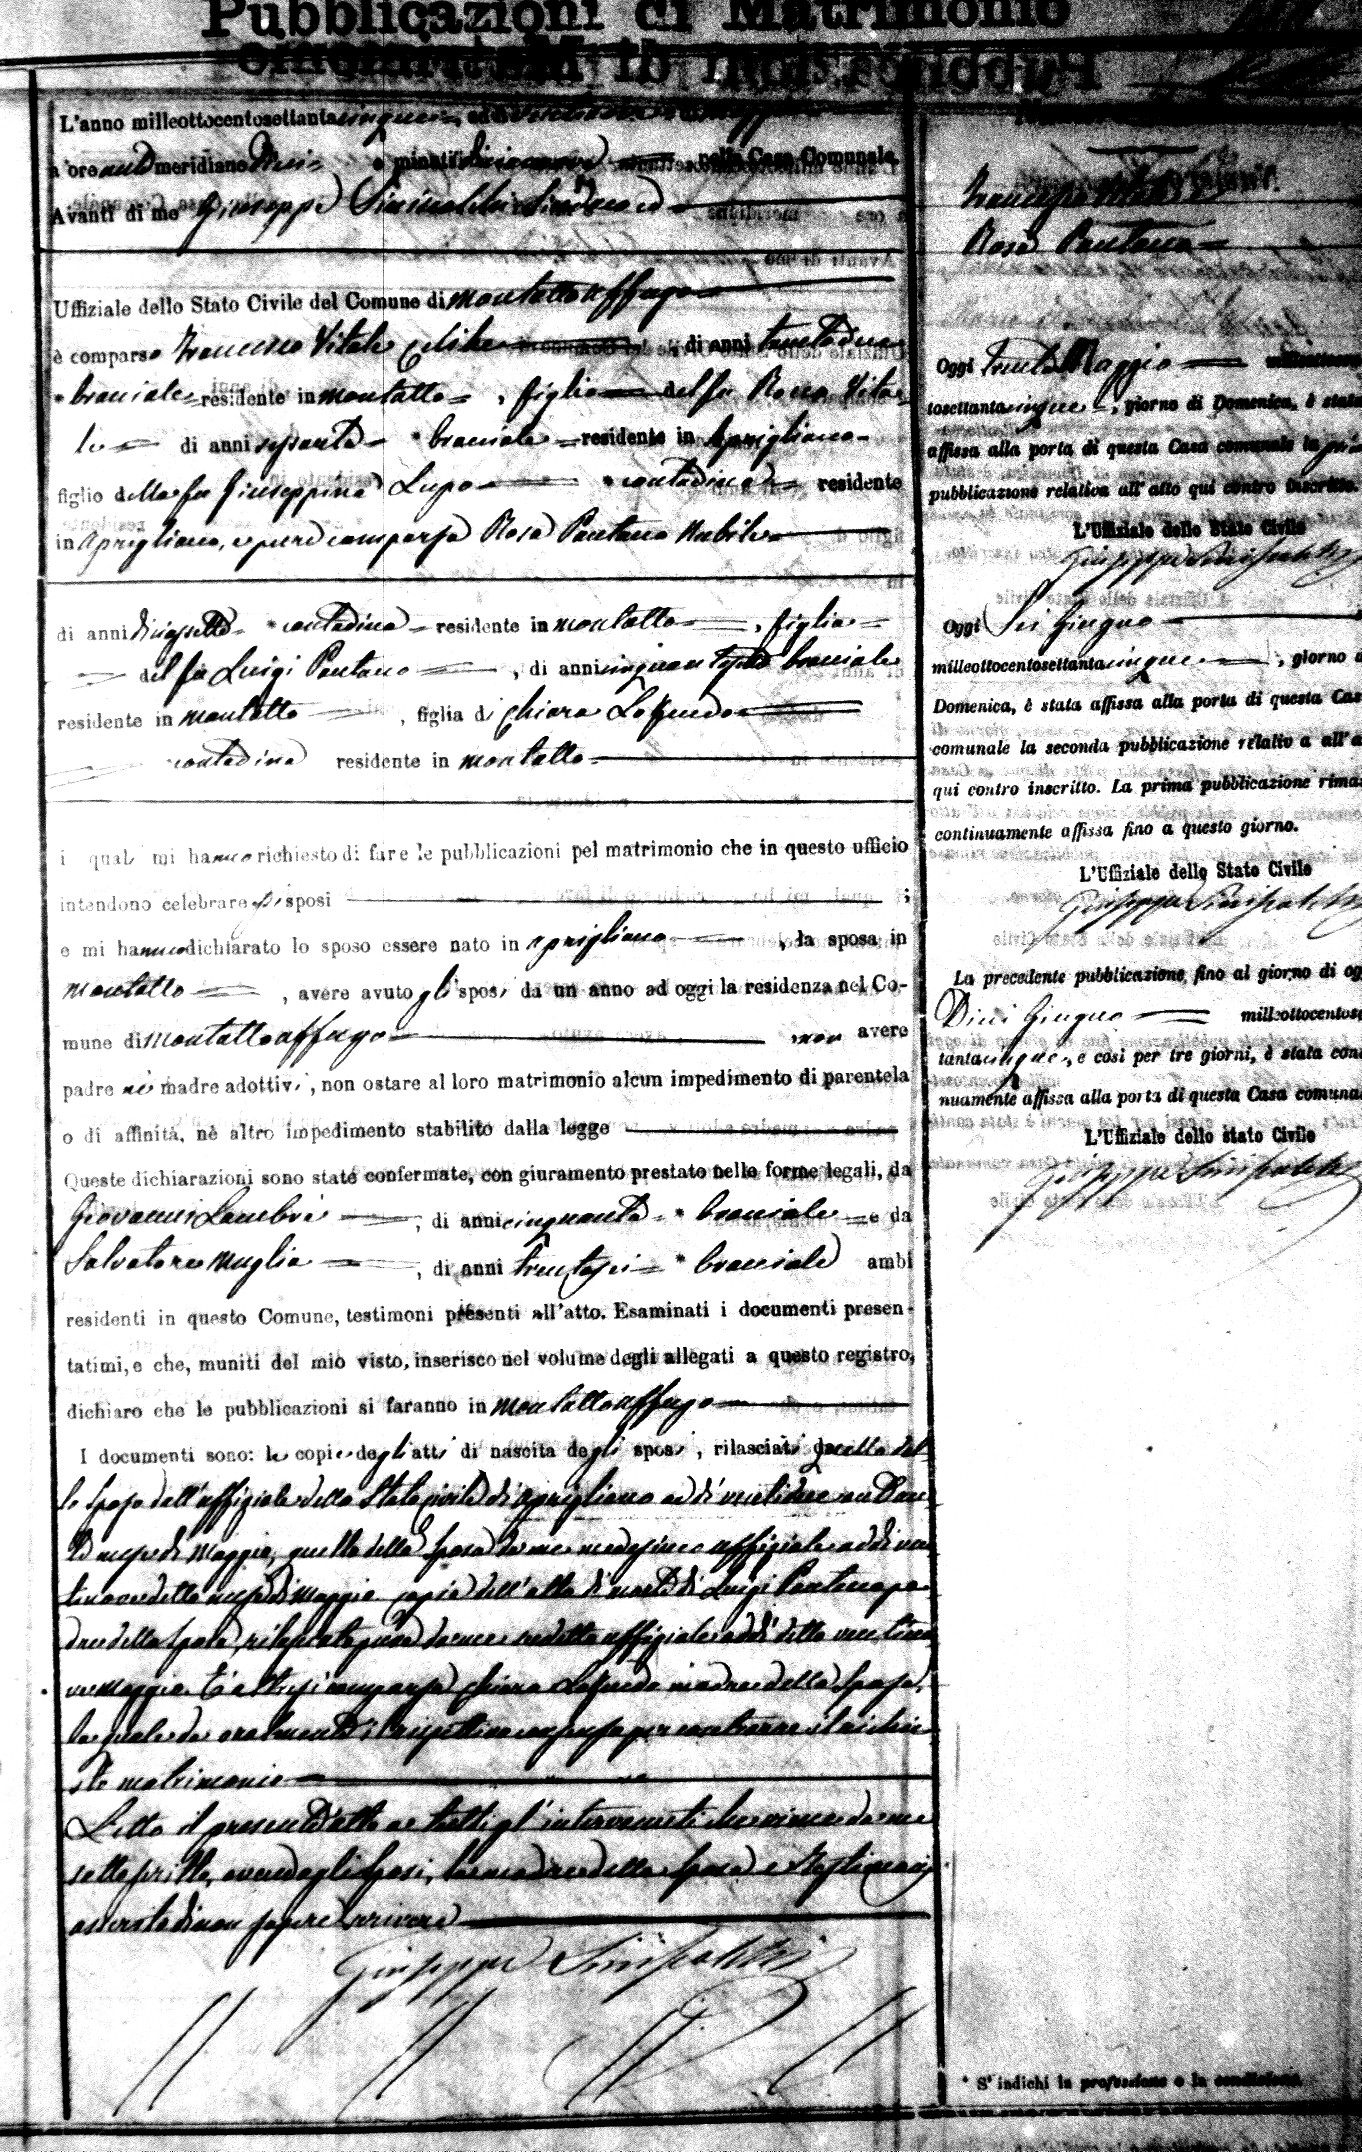 Pubblicazioni di Matrimonio
L'anno milleottocentosettantacinque, addì ventinove Maggio
a ore anti meridiane dieci e minuti nella Casa Comunale.
Avanti di me Giuseppe Sinisaldi Sindaco ed
Uffiziale dello Stato Civile del Comune di Montaltouffugo
è comparso Francesco Vitale celibe, di anni trentadue
* bracciale residente in Montalto, figlio del fu Rocco Vita-
le di anni sessanta * bracciale residente in Aprigliano
figlio della fu Giuseppina Lupo * contadina residente
in Aprigliano, e pure comparsa Rosa Pantano Nubile
di anni diciassette * contadina residente in Montalto, figlia
del fu Luigi Pantano, di anni cinquantasette bracciale
residente in Montalto, figlia di Chiara
contadina residente in Montalto
i quali mi hanno richiesto di fare le pubblicazioni pel matrimonio che in questo ufficio
intendono celebrare essi sposi ;
e mi hanno dichiarato lo sposo essere nato in Aprigliano, la sposa in
Montalto, avere avuto gli sposi da un anno ad oggi la residenza nel Co-
mune di Montaltouffugo non avere
padre nè madre adottivi, non ostare al loro matrimonio alcun impedimento di parentela
o di affinità, nè altro impedimento stabilito dalla legge
Queste dichiarazioni sono state confermate, con giuramento prestato nelle forme legali, da
Giovanni Lambrè, di anni cinquanta * bracciale e da
Salvatore Muglia, di anni trentasei * bracciale ambi
residenti in questo Comune, testimoni presenti all'atto. Esaminati i documenti presen-
tatimi, e che, muniti del mio visto, inserisco nel volume degli allegati a questo registro,
dichiaro che le pubblicazioni si faranno in Montaltouffugo
I documenti sono: le copie degli atti di nascita degli sposi, rilasciati quella del-
lo Sposo dall'uffiziale dello Stato civile di Aprigliano addì ventidue andan-
te mese di Maggio, quella della Sposa da me medesimo uffiziale addì ven-
tinove detto mese di Maggio copia dell'atto di morte di Luigi Pantano pa-
dre della sposa, rilasciata pure da me sudetto uffiziale addì detto ventino-
ve Maggio. È altresì comparsa Chiara madre della Sposa,
la quale da oralmente il rispettivo consenso per contrarre il richie-
sto matrimonio
Letto il presente atto a tutti gl'intervenuti che viene da me
sottoscritto, avendo gli Sposi, la madre della Sposa e Testimonj
asserito di non sapere scrivere
Giuseppe Sinisaldi
Francesco Vitale
Rosa Pantano
Oggi trenta Maggio
tosettantacinque, giorno di Domenica, è stata
affissa alla porta di questa Casa comunale la prima
pubblicazione relativa all'atto qui contro inscritto.
L'Uffiziale dello Stato Civile
Giuseppe Sinisaldi
Oggi Sei Giugno
milleottocentosettantacinque, giorno di
Domenica, è stata affissa alla porta di questa Casa
comunale la seconda pubblicazione relativa all'a
qui contro inscritto. La prima pubblicazione rimas
continuamente affissa fino a questo giorno.
L'Uffiziale dello Stato Civile
Giuseppe Sinisaldi
La precedente pubblicazione fino al giorno di og
Dieci Giugno milleottocentoset
tantacinque, e così per tre giorni, è stata conti
nuamente affissa alla porta di questa Casa comunal
L'Uffiziale dello stato Civile
Giuseppe Sinisaldi
* S' indichi la professione o la condizione.